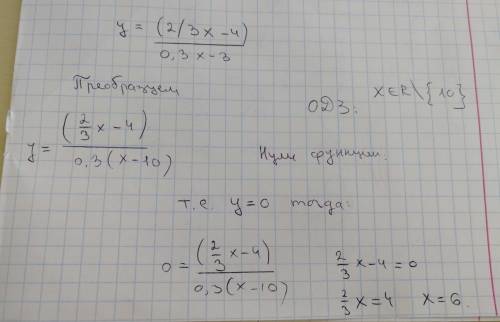 y = (2/3x-4) / 0,3x-3
Преобразуем
ОДЗ: x∈R\{10}
y = (2/3 x-4) / 0,3(x-10)
Нули функции.
т.е. y=0 тогда:
0 = (2/3 x-4) / 0,3(x-10)
2/3 x-4=0
2/3 x=4 x=6.